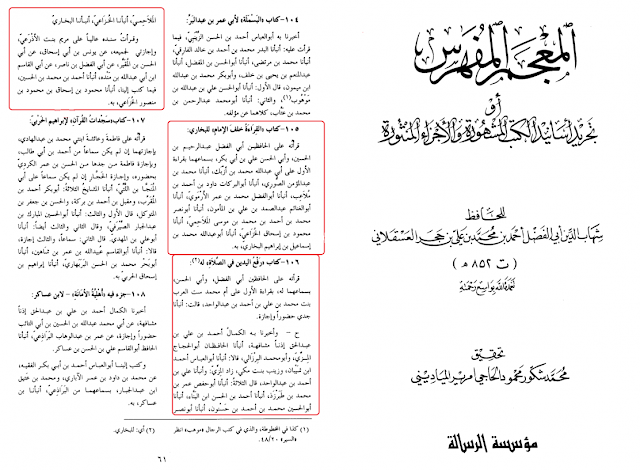 المعجم المفهرس
أو
تجريد أسانيد الكتب المشهورة والأجزاء المنثورة
للحافظ
شهاب الدين أبي الفضل أحمد بن علي بن حجر العسقلاني
(ت ٨٥٢ هـ)
تغمده الله بواسع رحمته
تحقيق
محمد شكور محمود الحاجي أمرير المياديني
مؤسسة الرسالة
١٠٤ - كتاب «البسملة» لأبي عمر بن عبدالبر:
أخبرنا به أبوالعباس أحمد بن الحسن الزينبي، فيما
قرأت عليه: أنبأنا البدر محمد بن أحمد بن خالد الفارقي،
أنبأنا محمد بن مرتضى، أنبأنا الحسن بن المفضل، أنبأنا
عبدالمنعم بن يحيى بن خلف، وأبوبكر محمد بن عبدالله
ابن ميمون، قال الأول: أنبأنا أبوالحسن علي بن عبدالله بن
موهوب(١)، والثاني: أنبأنا أبومحمد عبدالرحمن بن
محمد بن عتاب، كلاهما عن مؤلفه.
١٠٥ - كتاب «القراءة خلف الإمام» للبخاري:
قرأته على الحافظين أبي الفضل عبدالرحيم بن
الحسين، وأبي الحسن علي بن أبي بكر، بسماعهما بقراءة
الأول على أبي عبدالله محمد بن أزبك، أنبأنا محمد بن
عبدالمؤمن الصوري، أنبأنا أبوالبركات داود بن أحمد بن
ملاعب، أنبأنا أبوالفضل محمد بن عمر الأرموي، أنبأنا
أبوالغنائم عبدالصمد بن علي بن المأمون، أنبأنا أبونصر
محمد بن أحمد بن محمد بن موسى الملاحمي، أنبأنا
محمود بن إسحاق الخزاعي، أنبأنا أبوعبدالله محمد بن
إسماعيل بن إبراهيم البخاري، به.
١٠٦ - كتاب «رفع اليدين في الصلاة» له(٢):
قرأته على الحافظين أبي الفضل، وأبي الحسن،
بسماعهما له، بقراءة الأول على أم محمد ست العرب
بنت محمد بن علي بن أحمد بن عبدالواحد، قالت: أنبأنا
جدي حضوراً وإجازة.
ح - وأخبرنا به الكمال أحمد بن علي بن
عبدالحق إذناً مشافهة، أنبأنا الحافظان أبوالحجاج
المزي، وأبومحمد البرزالي، قالا: أنبأنا أبوالعباس أحمد
ابن شيبان، وزينب بنت مكي، زاد المزي: وأنبأنا علي بن
أحمد بن عبدالواحد، قال الثلاثة: أنبأنا أبوحفص عمر بن
محمد بن طبرزذ، أنبأنا أحمد بن الحسن ابن البناء، أنبأنا
أبوالحسين محمد بن أحمد بن حسنون، أنبأنا أبونصر
(١) كذا في المخطوطة، والذي في كتب الرجال «موهب» انظر
«السير» ٤٨/٢٠.
الملاحمي، أنبأنا الخزاعي، أنبأنا البخاري
وقرأت سنده عالياً على مريم بنت الأذرعي،
وإجازتي لجميعه، عن يونس بن أبي إسحاق، عن أبي
الحسن بن المقير، عن أبي الفضل بن ناصر، عن أبي القاسم
ابن أبي عبدالله بن منده، أنبأنا أحمد بن محمد بن الحسين،
فيما كتب إلينا، أنبأنا محمود بن إسحاق بن محمود بن
منصور الخزاعي، به.
١٠٧ - كتاب «سجدات القرآن» لإبراهيم الحربي:
قرأته على فاطمة وعائشة ابنتي محمد بن عبدالهادي،
بإجازتهما إن لم يكن سماعاً من أحمد بن أبي طالب
وبإجازة فاطمة من جدها من الحسن بن عمر الكردي
بحضوره، وإجازة الحجار إن لم يكن سماعاً على أبي
المنجا بن اللتي، أنبأنا المشايخ الثلاثة: أبوبكر أحمد بن
المقرب، ومقبل بن أحمد بن بركة، والحسن بن جعفر بن
المتوكل، قال الأول والثالث: أنبأنا أبوالحسين المبارك بن
عبدالجبار الصيرفي، وقال الثاني والثالث أيضاً: أنبأنا
أبوعلي بن المهدي. قال الثاني: سماعاً، والثالث إجازة،
قالا: أنبأنا أبوالقاسم عبيدالله بن عمر بن شاهين، أنبأنا
أبوبحر محمد بن الحسن البربهاري، أنبأنا إبراهيم بن
إسحاق الحربي به.
١٠٨ - جزء فيه «أهلية الأمانة» - لابن عساكر:
أخبرنا الكمال أحمد بن علي بن عبدالحق إذناً
مشافهة، عن أبي محمد عبدالله بن الحسين بن أبي التائب
وإجازة، عن محمد بن عمر بن عبدالوهاب البراذعي، أنبأنا
الحافظ أبوالقاسم علي بن الحسن بن عساكر.
وكتب إلينا أبوالعباس أحمد بن أبي بكر الفقيه،
عن محمد بن داود بن عمر الأباري، ومحمد بن عتيق
ابن عبدالجبار، بسماعهما من البراذعي، أنبأنا ابن
عساكر، به.
(٢) أي: للبخاري.
٦١